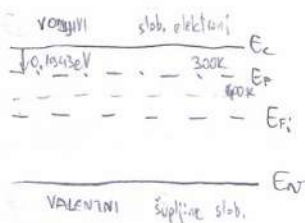 VODLJIVI slob. elektroni
Ec
0,1943eV 300K EF
400K
EFi
Ev
VALENTNI šupljine slob.